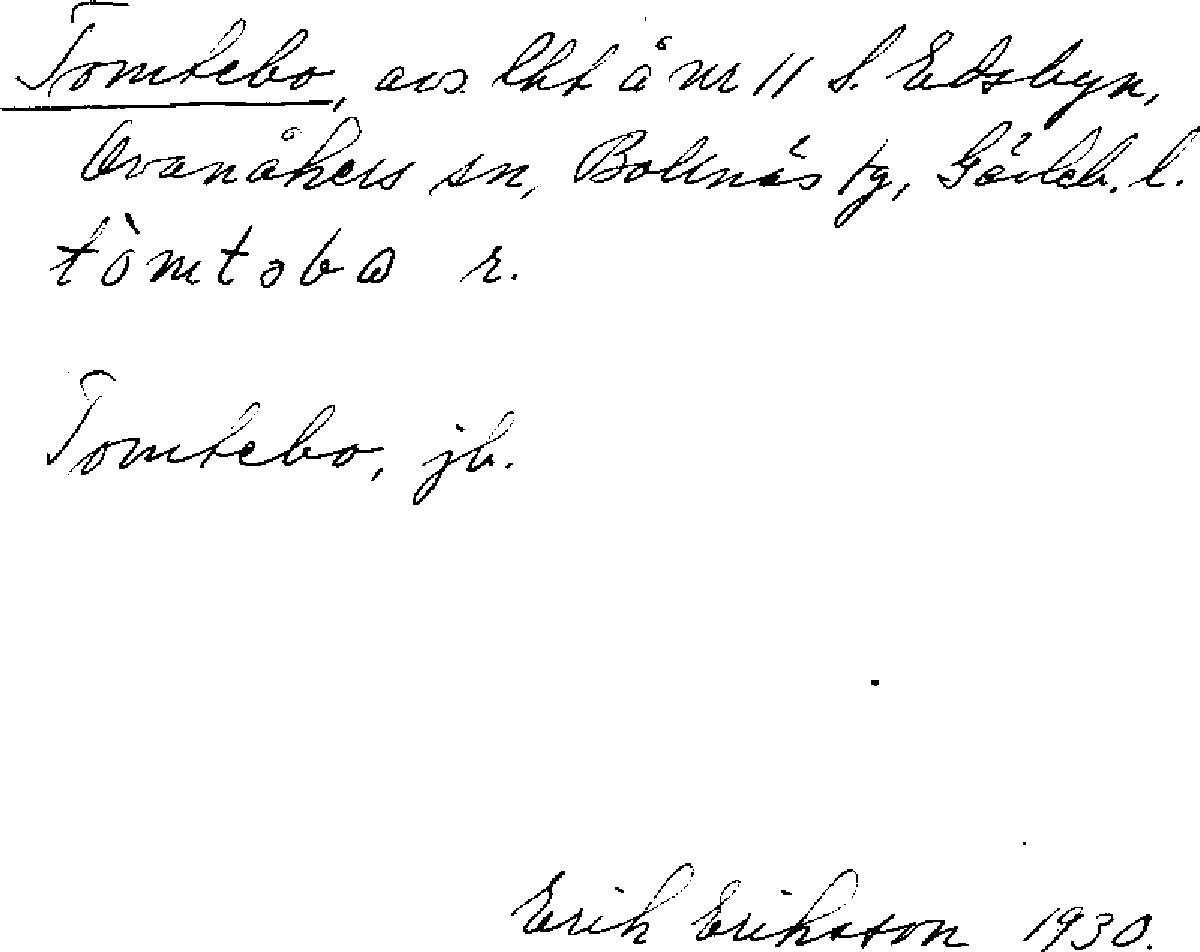 Tomtebo, avs. lht å nr 11 S. Edsbyn,
Ovanåkers sn, Bollnäs tg, Gävleb. l.
tòmtəbω r.
Tomtebo, jb.
Erik Erikson 1930.